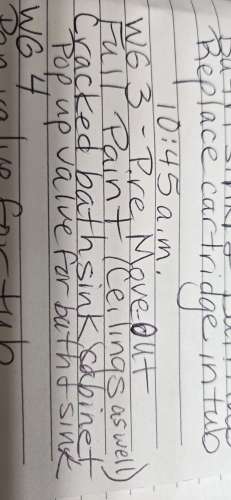 Replace cartridge in tub
10:45 a.m.
WG 3 - Pre Move-Out
Full Paint (Ceilings as well)
Cracked bath sink (cabinet
Pop up valve for bath sink
WG 4